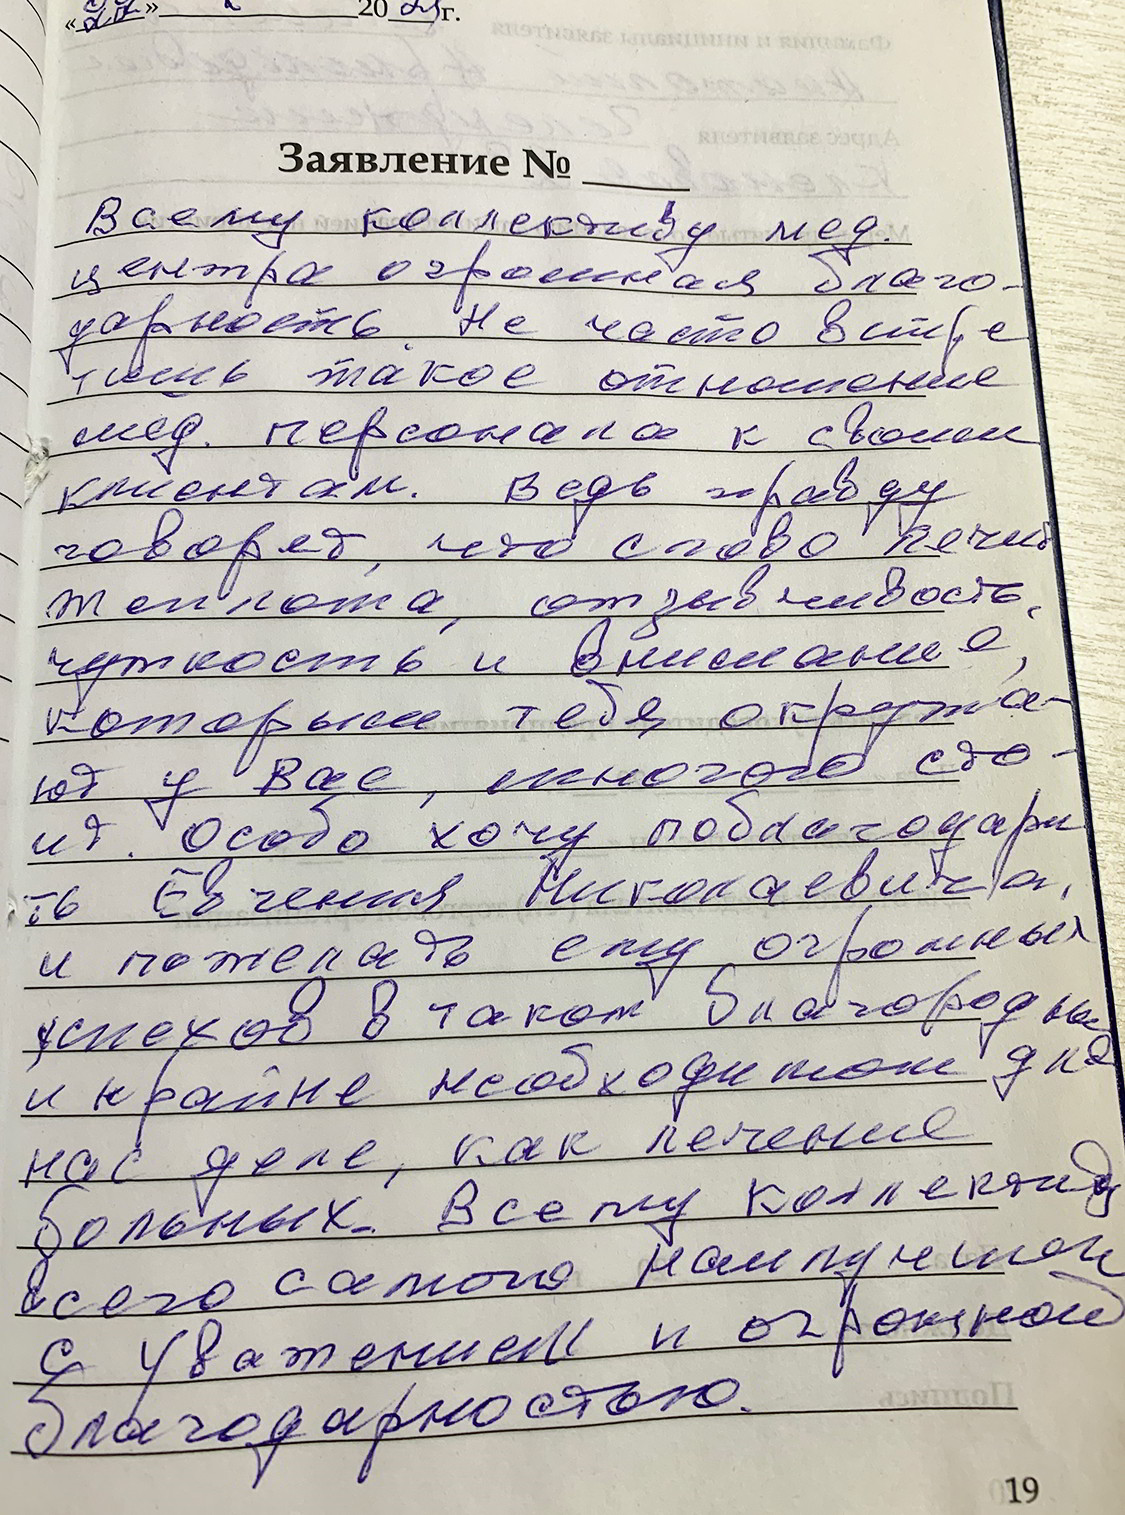 «22» 2 2021 г.
Заявление № ____
Всему коллективу мед.
центра огромная благо-
дарность. Не часто встре
тишь такое отношение
мед. персонала к своим
клиентам. Ведь правду
говорят, что слово лечит
теплота, отзывчивость,
чуткость и внимание,
которым тебя окружа-
ют у Вас, многого сто-
ит. Особо хочу поблагодари
ть Евгения Николаевича,
и пожелать ему огромных
успехов в таком благородном
и крайне необходимом для
нас деле, как лечение
больных. Всему коллективу
всего самого наилучшего
С Уважением и огромной
благодарностью.
19